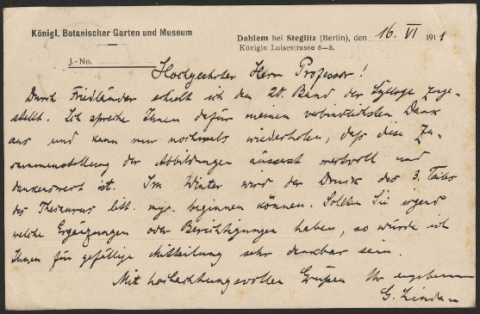 Königl. Botanischer Garten und Museum
Dahlem bei Steglitz (Berlin), den 16. VI 1911
Königin Luisestrasse 6–8.
J.-No.
Hochgeehrter Herr Professor!
Durch Friedländer erhielt ich den 20. Band der Sylloge zuge-
stellt. Ich spreche Ihnen dafür meinen verbindlichsten Dank
aus und kann nur nochmals wiederholen, daß diese Zu-
sammenstellung der Abbildungen äusserst wertvoll und
dankenswert ist. Im Winter wird der Druck des 3. Teiles
des Thesaurus litt. myc. beginnen können. Sollten Sie irgend
welche Ergänzungen oder Berichtigungen haben, so würde ich
Ihnen für gefällige Mitteilung sehr dankbar sein.
Mit hochachtungsvollen Grüßen Ihr ergebener
G. Lindau